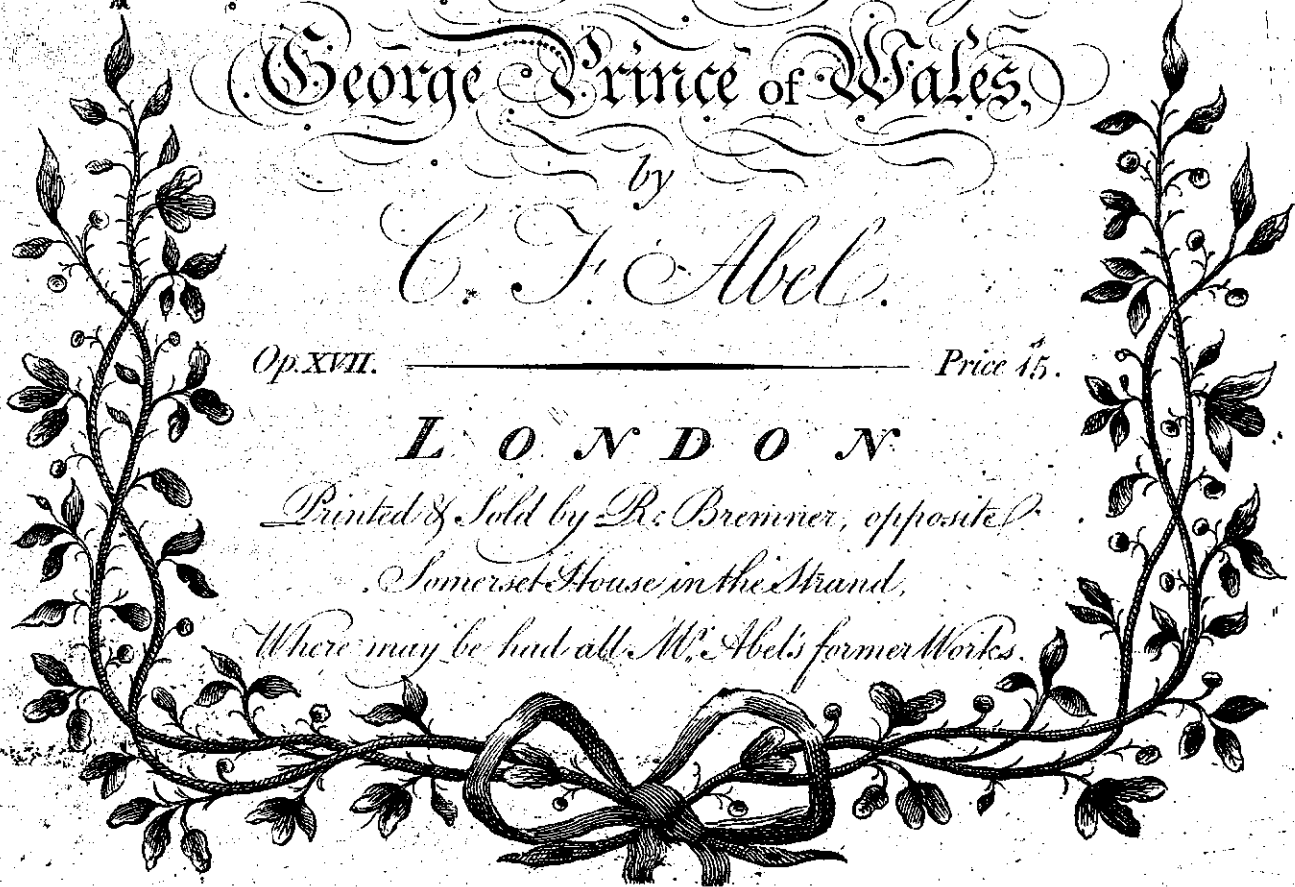 George Prince of Wales,
by
C. F. Abel.
Op. XVII. Price 15.s
LONDON
Printed & Sold by R. Bremner, opposite
Somerset House in the Strand,
Where may be had all Mr. Abel's former Works.